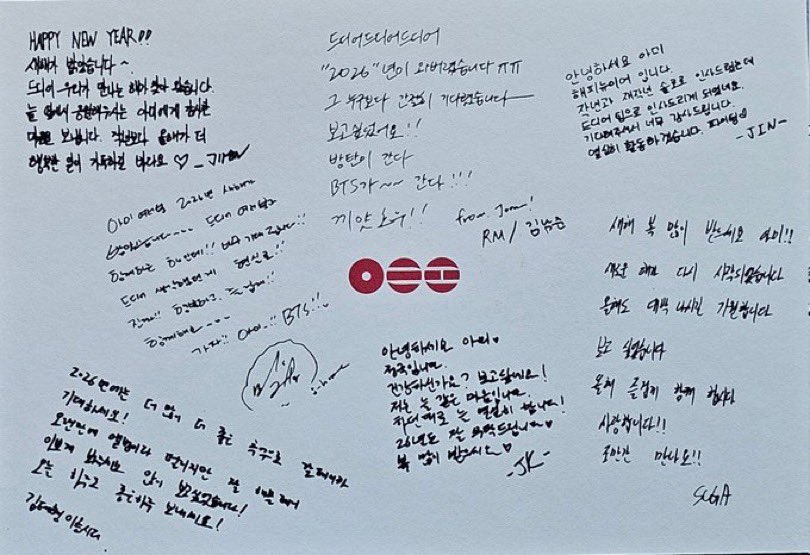 HAPPY NEW YEAR!!
새해가 밝았습니다~
드디어 우리가 만나는 해가 찾아 왔습니다.
늘 옆에서 응원해주시는 아미에게 감사한
마음을 보냅니다. 작년보다 올해가 더
행복한 일이 가득하길 바라요 ♡ _ JIMIN
드디어드디어드디어
"2026"년이 와버렸습니다 ㅠㅠ
그 누구보다 간절히 기다렸습니다
보고싶었어요!!
방탄이 간다
BTS가~~ 간다!!!
끼얏호우!!
from Jom!
RM / 김남준
안녕하세요 아미
해피뉴이어 입니다.
작년과 재작년 솔로로 인사드렸는데
드디어 팀으로 인사드리게 되었네요.
기다려주셔서 너무 감사드립니다.
열심히 활동하겠습니다. 파이팅
-JIN-
아미 여러분 2026년 새해가
밝았습니다.... 드디어 여러분과
함께하는 해인데!! 너무 기대됩니다!!
드디어 현실로!!
진짜!! 즐겁게!!
함께해요~~~
가자!! 아미..!! BTS!!
j-hope
안녕하세요 아미♡
정국입니다.
건강하신가요? 보고싶네요!
저는 늘 같은 마음입니다.
하던대로 늘 열심히 합니다!
26년도 잘 부탁드립니다♡
복 많이 받으시소♡
-JK-
새해 복 많이 받으세요 아미!!
새로운 해가 다시 시작되었습니다
올해도 대박 나시길 기원합니다
보고 싶었습니다
올해 즐겁게 함께 합시다
사랑합니다!!
조만간 만나요!!
SUGA
2026년에는 더 많이 더 좋은 추억으로
기대하세요!
오랜만에 앨범이라 떨리지만 잘
이쁘게 봐주시고 많이 보고싶었습니다!
오늘 하루도 좋은하루 보내세요!
김태형 이었습니다